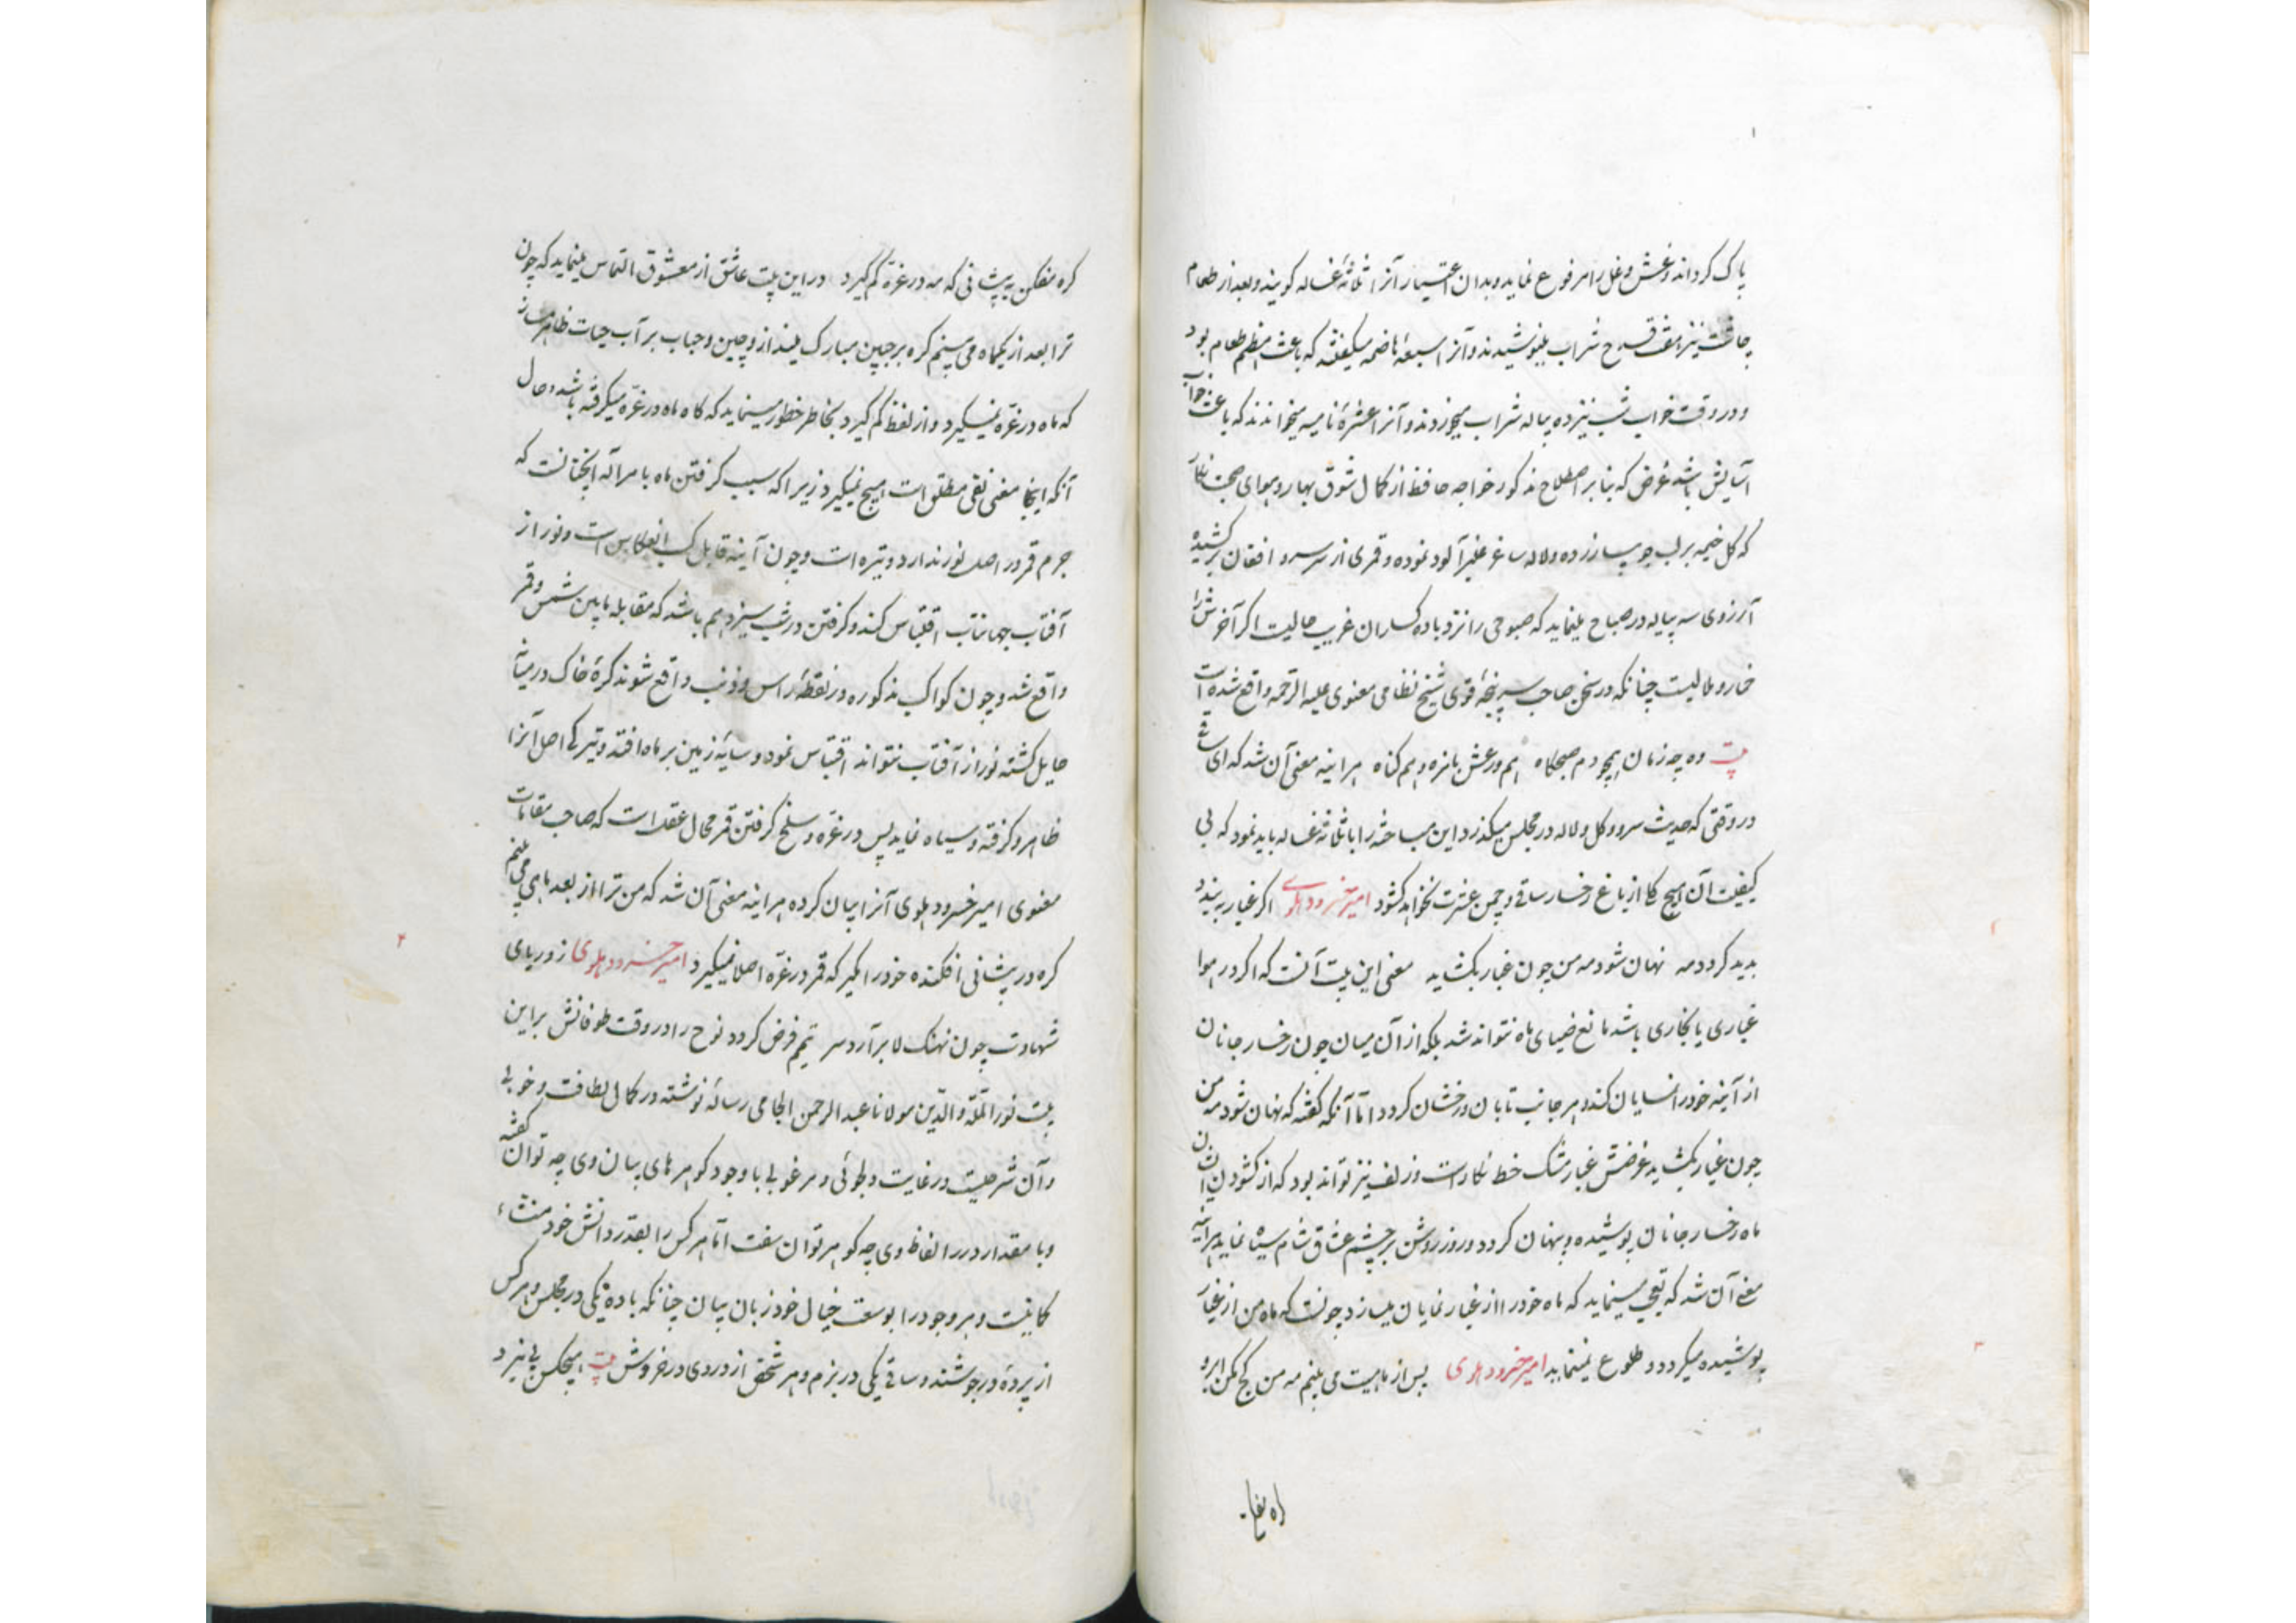 پاک کرداند و غش و غل را مرفوع نماید و بدان اعتبار آنرا ثلاثهٔ غساله کویند و بعد از طعام
چاشت نیز هفت قدح شراب مینوشیدند و آنرا سبعهٔ هاضمه میکفتند که باعث هضم طعام بود
و در وقت خواب شب نیز ده پیاله شراب میخوردند و آنرا عشرهٔ نامیه میخواندند که باعث خواب
آسایش باشد غرض که بنابر اصطلاح مذکور خواجه حافظ از کمال شوق بهار و هوای صحبت
که کل خیمه بر لب جویبار زده و لاله ساغر عنبرآلود نموده و قمری از سر سرو افغان برکشیده
آرزوی سه پیاله در صباح مینماید که صبوحی را نزد باده کساران غریب حالیت اکر آخرش را
خمار و ملالیست چنانکه در سخن صاحب پنجهٔ قوی شیخ نظامی معنوی علیه الرحمه واقع شده است
بیت وه چه زمان همچو دم صبحگاه هم ورعش بامزه و هم کناه هر اینه معنی آن شد که ای ساقی
در وقتی که حدیث سرو و کل و لاله در مجلس میکذرد این مباحثه را با ثلاثهٔ غساله باید نمود که بی
کیفیت آن هیچ کل از باغ رخسار ساقی و چمن عشرت نخواهد کشود امیر خسرو دهلوی اکر غبار ببندد
پدید کردد مه نهان شود مه من چون غبار بکشاید معنی این بیت آنست که اکر در هوا
غباری یا بخاری باشد مانع ضیای ماه نتواند شد بلکه از آن میان چون رخسار جانان
از آینه خود را نمایان کند و هر جانب تابان و رخشان کردد اما آنکه کفته که نهان شود مه من
چون غبار بکشاید غرضش غبار مشک خط نکار است و زلف نیز تواند بود که از کشودن آن
ماه رخسار جانان پوشیده و پنهان کردد و روز روشن بر چشم عشاق شام سیاه نماید هر اینه
معنی آن شد که تعجب مینماید که ماه خود را از غبار نمایان میسازد چونست که ماه من از غبار
پوشیده میکردد و طلوع نمینماید امیر خسرو دهلوی پس از ماهیت می بینم مه من کج مکن ابرو
کره مفکن به پیشانی که مه در غره کم کیرد در این بیت عاشق از معشوق التماس مینماید که چون
ترا بعد از یکماه می بینم کره بر جبین مبارک مینداز و چین و حباب بر آب حیات ظاهر مساز
که ماه در غره نمیکیرد و از لفظ کم کیرد بخاطر خطور مینماید که کاه ماه در غره میکرفته باشد و حال
آنکه اینجا معنی نفی مطلق است هیچ نمیکیرد زیرا که سبب کرفتن ماه بامر الله اینچنانست که
جرم قمر در اصل نور ندارد و تیره است و چون آینه قابل انعکاس است و نور از
آفتاب جهانتاب اقتباس کند و کرفتن در شب سیزدهم باشد که مقابله مابین شمس و قمر
واقع شد و چون کواکب مذکوره در نقطهٔ راس و ذنب واقع شوند کرهٔ خاک در میان
حایل کشته نور از آفتاب نتواند اقتباس نمود و سایهٔ زمین بر ماه افتد و تیرکی اصل آنرا
ظاهر و کرفته و سیاه نماید پس در غره و سلخ کرفتن قمر محال عقل است که صاحب مقامات
معنوی امیر خسرو دهلوی آنرا بیان کرده هر اینه معنی آن شد که من ترا از بعد ماهی می بینم
کره در پیشانی افکنده خود را مکیر که قمر در غره اصلا نمیکیرد امیر خسرو دهلوی ز دریای
شهادت چون نهنک لا برآرد سر تیمم فرض کردد نوح را در وقت طوفانش براین
بیت نور المله و الدین مولانا عبد الرحمن الجامی رساله نوشته در کمال لطافت و خوبی
و آن شرحیست در غایت دلجوئی و مرغوبی با وجود کوهرهای بیان وی چه توان کفت
و با مقدار درر الفاظ وی چه کوهر توان سفت اما هر کس را بقدر دانش خود منشاء
کاینست و هر وجود را بوسعت خیال خود زبان بیان چنانکه باده یکی در مجلس و هر کس
از پردهٔ در جوشند و ساقی یکی در بزم و هر شخصی از دردی در خروش بیت هیچکس